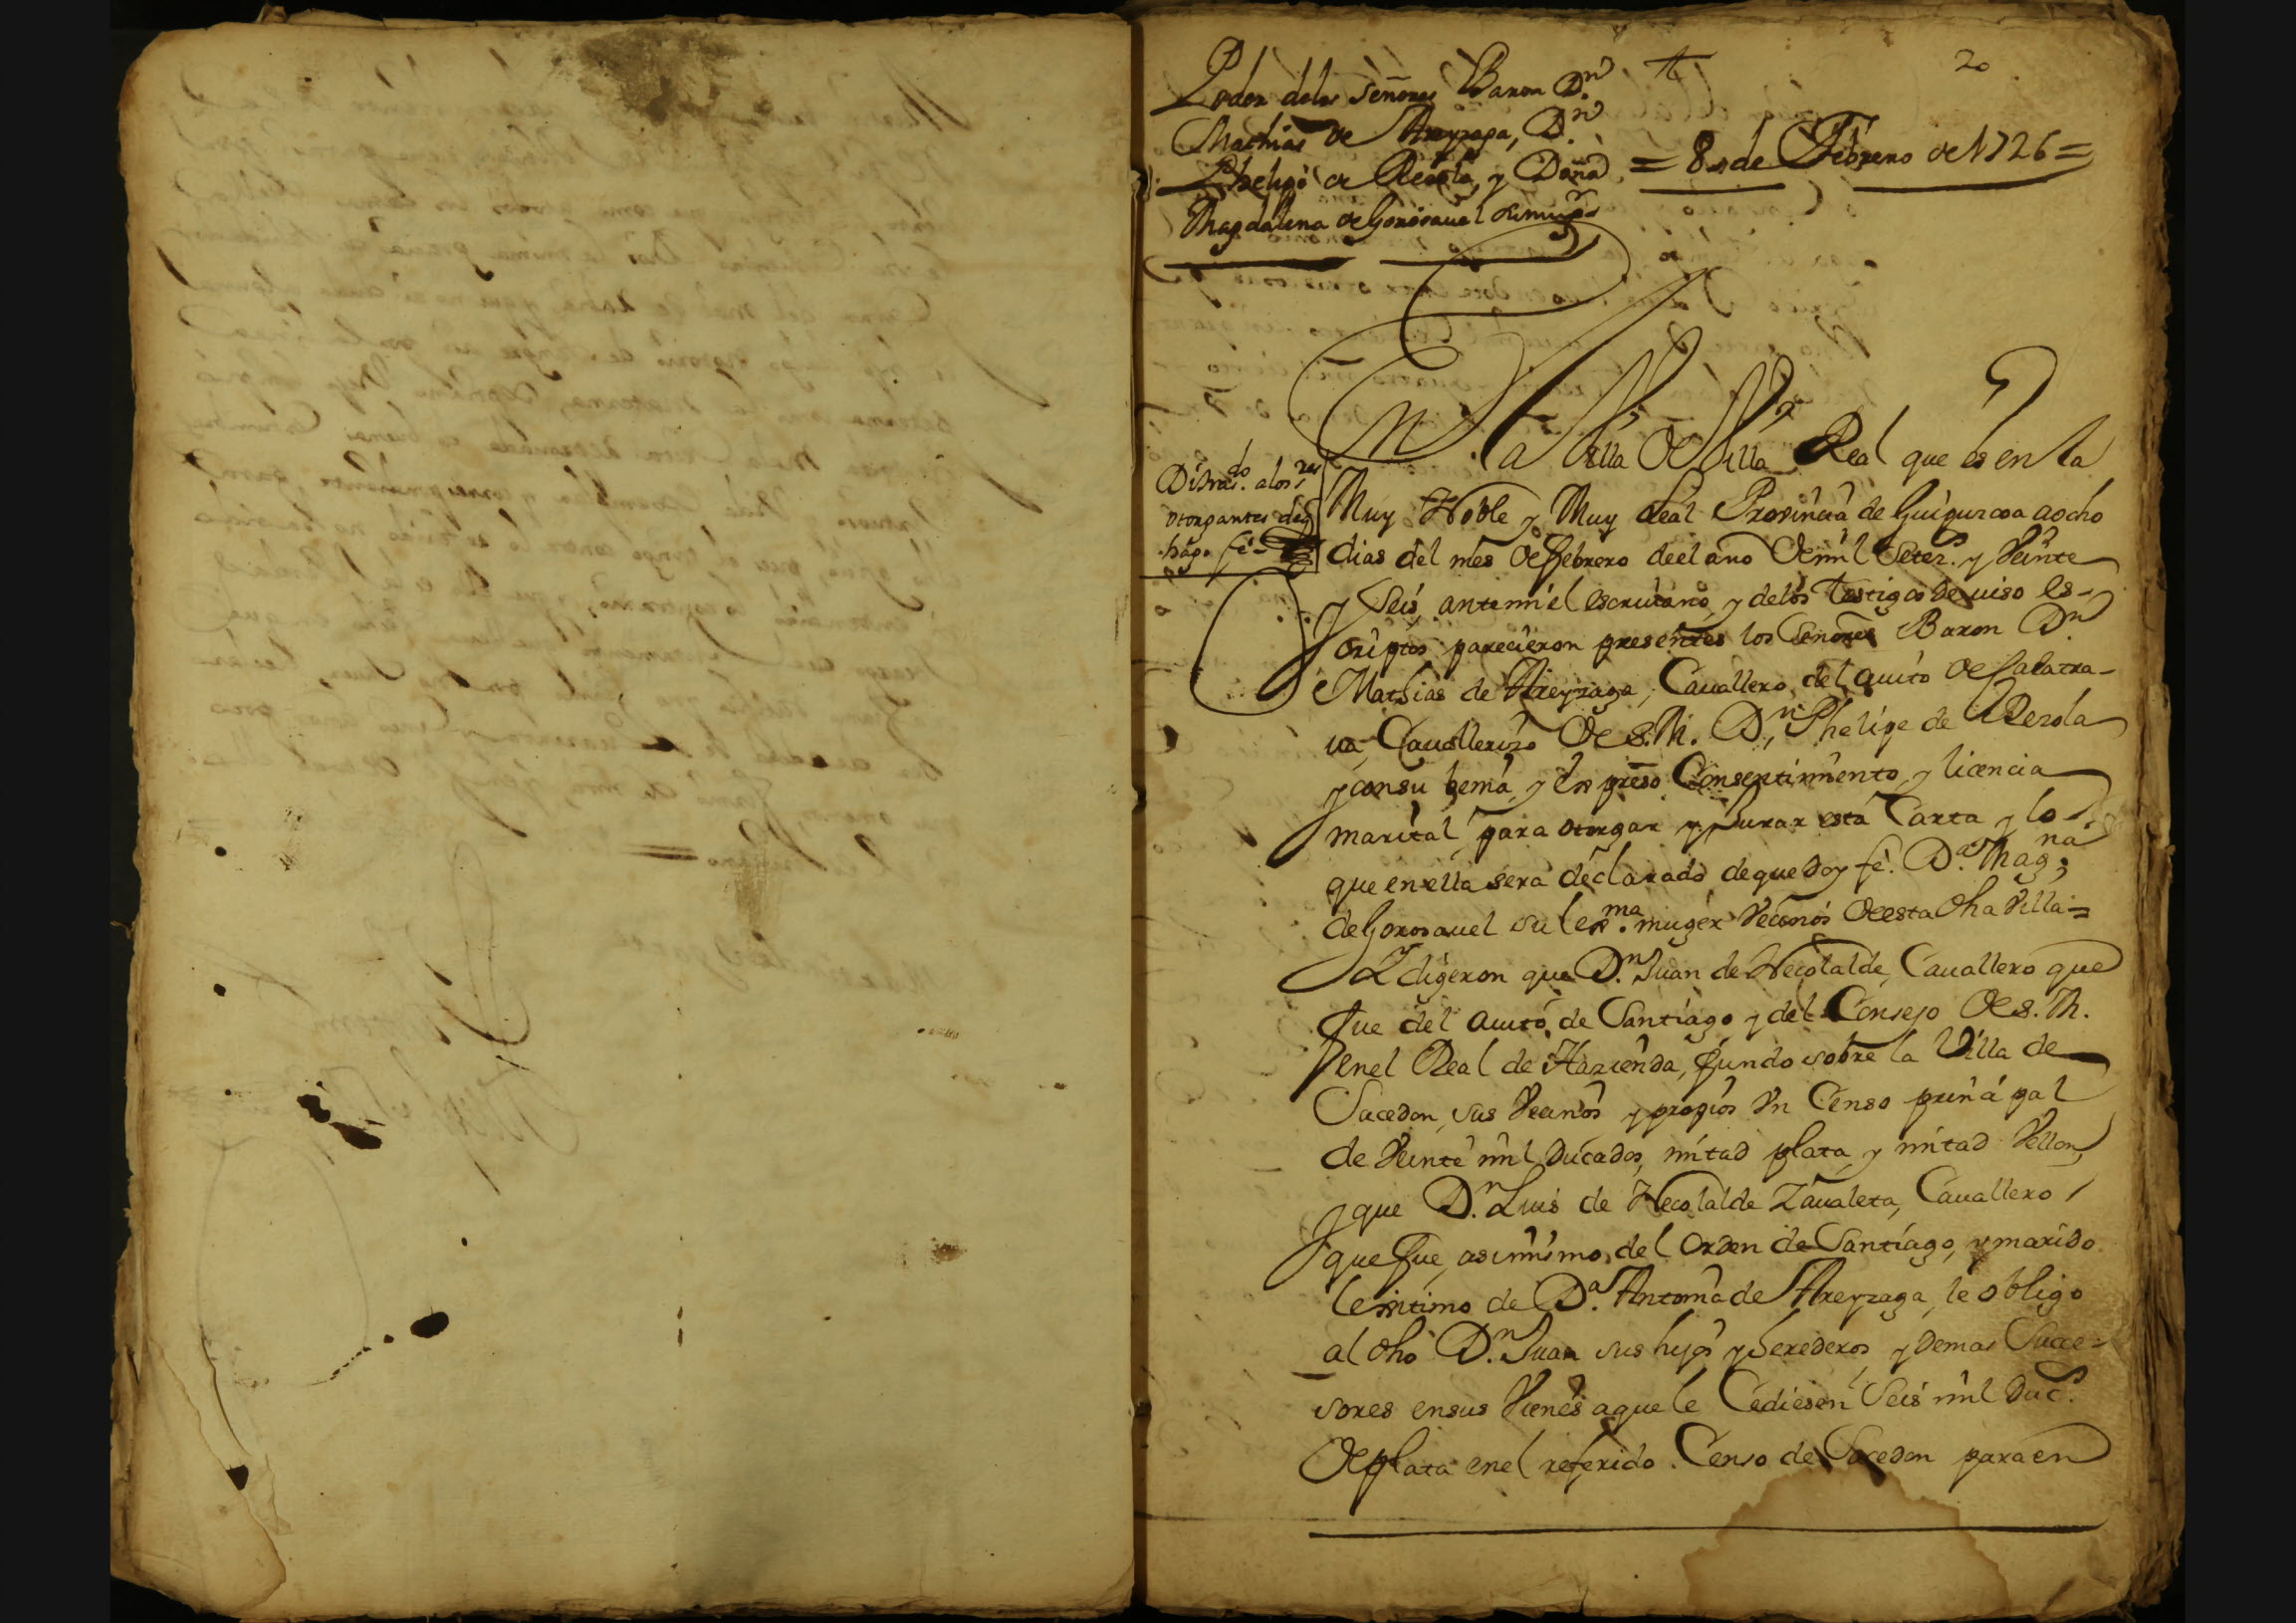 20
Poder delos Señores Baron D.n
Mathias de Areyzaga, D.n
Phelipe de Recola, y Doña
Magdalena de Gorosauel su muger
= 8 de Febrero de 1726 =
En la Villa de Villa Real que es en la
Muy Noble y Muy Leal Provincia de Guipuzcoa a ocho
dias del mes de febrero de el año de mil Setez.s y Veinte
y Seis, ante mi el escriuano, y delos testigos de iuso es-
criptos parecieron presentes los Señores Baron D.n
Mathias de Areyzaga, Cauallero del auito de Calatra-
ua, Cauallerizo de S. M. D.n Phelipe de Rezola
y con su benia, y expreso Consentimiento, y licencia
marital para otorgar y Jurar esta Carta y lo
que en ella será declarado de que doy fé. D.a Mag.na
de Gorosauel su lex.ma muger Vecinos de esta dha Villa =
Y digeron que D.n Juan de Necolalde, Cauallero que
fue del auito de Santiago y del Consejo de S. M.
en el Real de Hazienda, fundo sobre la Villa de
Sacedon, sus Vecinos y propios Vn Censo principal
de Veinte mil Ducados, mitad plata, y mitad Vellon,
y que D.n Luis de Necolalde Zaualeta, Cauallero
que fue, asimismo, del orden de Santiago, y marido
lexitimo de D.a Antonia de Areyzaga, le obligo
al dho D.n Juan sus hijos y herederos, y demas Succe-
sores en sus Vienes a que le Cediesen Seis mil Duc.s
de plata en el referido Censo de Sacedon para en
Di tras.do a los s.res
otorgantes de q
hago fé